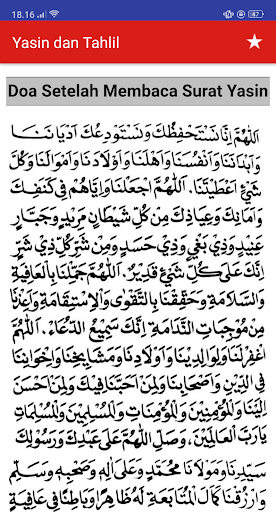 18.16
47
Yasin dan Tahlil
Doa Setelah Membaca Surat Yasin
اَللّٰهُمَّ اِنَّا نَسْتَحْفِظُكَ وَنَسْتَوْدِعُكَ اَدْيَانَنَا
وَاَبْدَانَنَا وَاَنْفُسَنَا وَاَهْلَنَا وَاَوْلَادَنَا وَاَمْوَالَنَا وَكُلَّ
شَيْءٍ اَعْطَيْتَنَا. اَللّٰهُمَّ اجْعَلْنَا وَاِيَّاهُمْ فِيْ كَنَفِكَ
وَاَمَانِكَ وَعِيَاذِكَ مِنْ كُلِّ شَيْطَانٍ مَرِيْدٍ وَجَبَّارٍ
عَنِيْدٍ وَذِيْ بَغْيٍ وَذِيْ حَسَدٍ وَمِنْ شَرِّ كُلِّ ذِيْ شَرٍّ
اِنَّكَ عَلَى كُلِّ شَيْءٍ قَدِيْرٌ. اَللّٰهُمَّ جَمِّلْنَا بِالْعَافِيَةِ
وَالسَّلَامَةِ وَحَقِّقْنَا بِالتَّقْوَى وَالْاِسْتِقَامَةِ وَاَعِذْنَا
مِنْ مُوْجِبَاتِ النَّدَامَةِ اِنَّكَ سَمِيْعُ الدُّعَاءِ. اَللّٰهُمَّ
اغْفِرْ لَنَا وَلِوَالِدِيْنَا وَاَوْلَادِنَا وَمَشَايِخِنَا وَاِخْوَانِنَا
فِي الدِّيْنِ وَاَصْحَابِنَا وَلِمَنْ اَحَبَّنَا فِيْكَ وَلِمَنْ اَحْسَنَ
اِلَيْنَا وَلِلْمُؤْمِنِيْنَ وَالْمُؤْمِنَاتِ وَالْمُسْلِمِيْنَ وَالْمُسْلِمَاتِ
يَارَبَّ الْعَالَمِيْنَ، وَصَلِّ اللّٰهُمَّ عَلَى عَبْدِكَ وَرَسُوْلِكَ
سَيِّدِنَا وَمَوْلَانَا مُحَمَّدٍ وَعَلَى اٰلِهِ وَصَحْبِهِ وَسَلِّمْ
وَارْزُقْنَا كَمَالَ الْمُتَابَعَةِ لَهُ ظَاهِرًا وَبَاطِنًا فِيْ عَافِيَةٍ